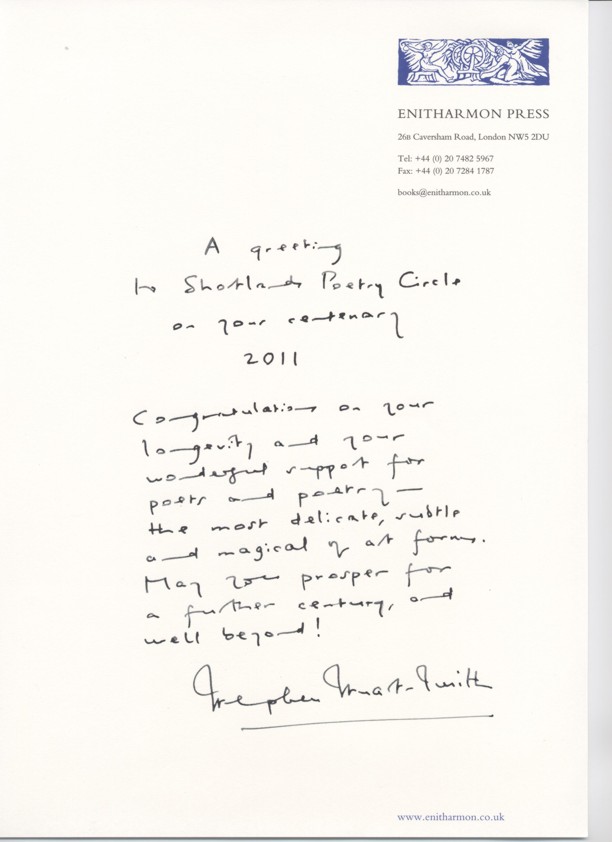 ENITHARMON PRESS
26B Caversham Road, London NW5 2DU
Tel: +44 (0) 20 7482 5967
Fax: +44 (0) 20 7284 1787
books@enitharmon.co.uk
A greeting
to Shortlands Poetry Circle
on your centenary
2011
Congratulations on your
longevity and your
wonderful support for
poets and poetry —
the most delicate, subtle
and magical of art forms.
May you prosper for
a further century, and
well beyond!
Stephen Stuart-Smith
www.enitharmon.co.uk